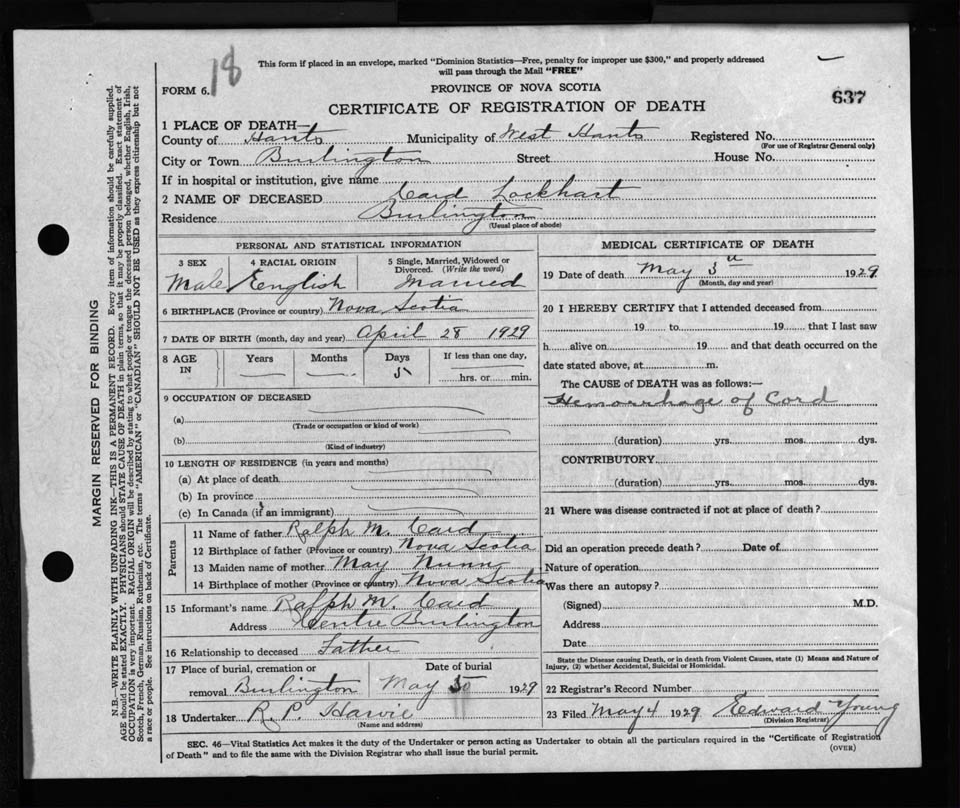 18
This form if placed in an envelope, marked "Dominion Statistics—Free, penalty for improper use $300," and properly addressed
will pass through the Mail "FREE"
FORM 6.
PROVINCE OF NOVA SCOTIA
637
CERTIFICATE OF REGISTRATION OF DEATH
1 PLACE OF DEATH—
County of Hants Municipality of West Hants Registered No.
(For use of Registrar General only)
City or Town Burlington Street House No.
If in hospital or institution, give name
2 NAME OF DECEASED Card Lockhart
Residence Burlington
(Usual place of abode)
PERSONAL AND STATISTICAL INFORMATION
3 SEX 4 RACIAL ORIGIN 5 Single, Married, Widowed or Divorced. (Write the word)
Male English Married
6 BIRTHPLACE (Province or country) Nova Scotia
7 DATE OF BIRTH (month, day and year) April 28 1929
8 AGE IN Years Months Days 5 If less than one day, hrs. or min.
9 OCCUPATION OF DECEASED
(a)
(Trade or occupation or kind of work)
(b)
(Kind of industry)
10 LENGTH OF RESIDENCE (in years and months)
(a) At place of death
(b) In province
(c) In Canada (if an immigrant)
Parents
11 Name of father Ralph M. Card
12 Birthplace of father (Province or country) Nova Scotia
13 Maiden name of mother May Nunn
14 Birthplace of mother (Province or country) Nova Scotia
15 Informant's name Ralph M. Card
Address Centre Burlington
16 Relationship to deceased Father
17 Place of burial, cremation or removal Burlington
Date of burial May 5 1929
18 Undertaker R. P. Harvie
(Name and address)
MEDICAL CERTIFICATE OF DEATH
19 Date of death May 3 1929
(Month, day and year)
20 I HEREBY CERTIFY that I attended deceased from
19 to 19 that I last saw
h alive on 19 and that death occurred on the
date stated above, at m.
The CAUSE of DEATH was as follows:—
Hemorrhage of Cord
(duration) yrs. mos. dys.
CONTRIBUTORY
(duration) yrs. mos. dys.
21 Where was disease contracted if not at place of death?
Did an operation precede death? Date of
Nature of operation
Was there an autopsy?
(Signed) M.D.
Address
Date
State the Disease causing Death, or in death from Violent Causes, state (1) Means and Nature of
Injury, (2) whether Accidental, Suicidal or Homicidal.
22 Registrar's Record Number
23 Filed May 4 1929 Edward Young
(Division Registrar)
SEC. 46—Vital Statistics Act makes it the duty of the Undertaker or person acting as Undertaker to obtain all the particulars required in the "Certificate of Registration
of Death" and to file the same with the Division Registrar who shall issue the burial permit.
(OVER)
MARGIN RESERVED FOR BINDING
N.B.—WRITE PLAINLY WITH UNFADING INK—THIS IS A PERMANENT RECORD. Every item of information should be carefully supplied.
AGE should be stated EXACTLY. PHYSICIANS should STATE CAUSE OF DEATH in plain terms, so that it may be properly classified. Exact statement of
OCCUPATION is very important. RACIAL ORIGIN will be described by stating to what people or tongue the deceased person belonged, whether English, Irish,
Scotch, French, German, Russian, Ruthenian, etc. The terms "AMERICAN" or "CANADIAN" SHOULD NOT BE USED as they express citizenship but not
a race or people. See instructions on back of Certificate.